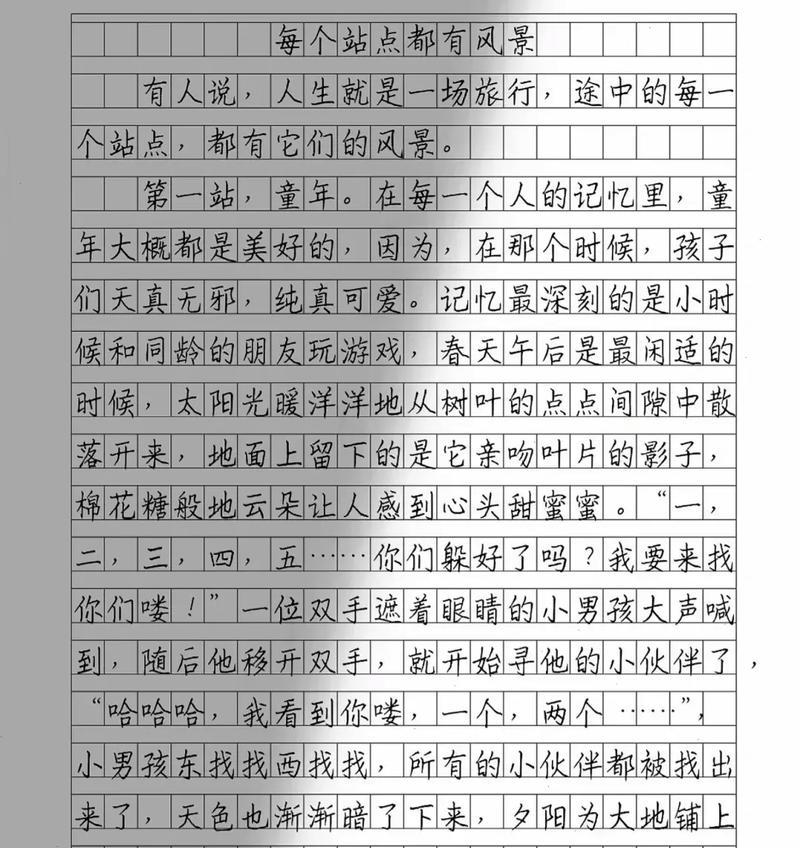 每个站点都有风景
有人说，人生就是一场旅行，途中的每一
个站点，都有它们的风景。
第一站，童年。在每一个人的记忆里，童
年大概都是美好的，因为，在那个时候，孩子
们天真无邪，纯真可爱。记忆最深刻的是小时
候和同龄的朋友玩游戏，春天午后是最闲适的
时候，太阳光暖洋洋地从树叶的点点间隙中散
落开来，地面上留下的是它亲吻叶片的影子，
棉花糖般地云朵让人感到心头甜蜜蜜。“一，
二，三，四，五……你们躲好了吗？我要来找
你们喽！”一位双手遮着眼睛的小男孩大声喊
到，随后他移开双手，就开始寻他的小伙伴了，
“哈哈哈，我看到你喽，一个，两个……”，
小男孩东找找西找找，所有的小伙伴都被找出
来了，天色也渐渐暗了下来，夕阳为大地铺上